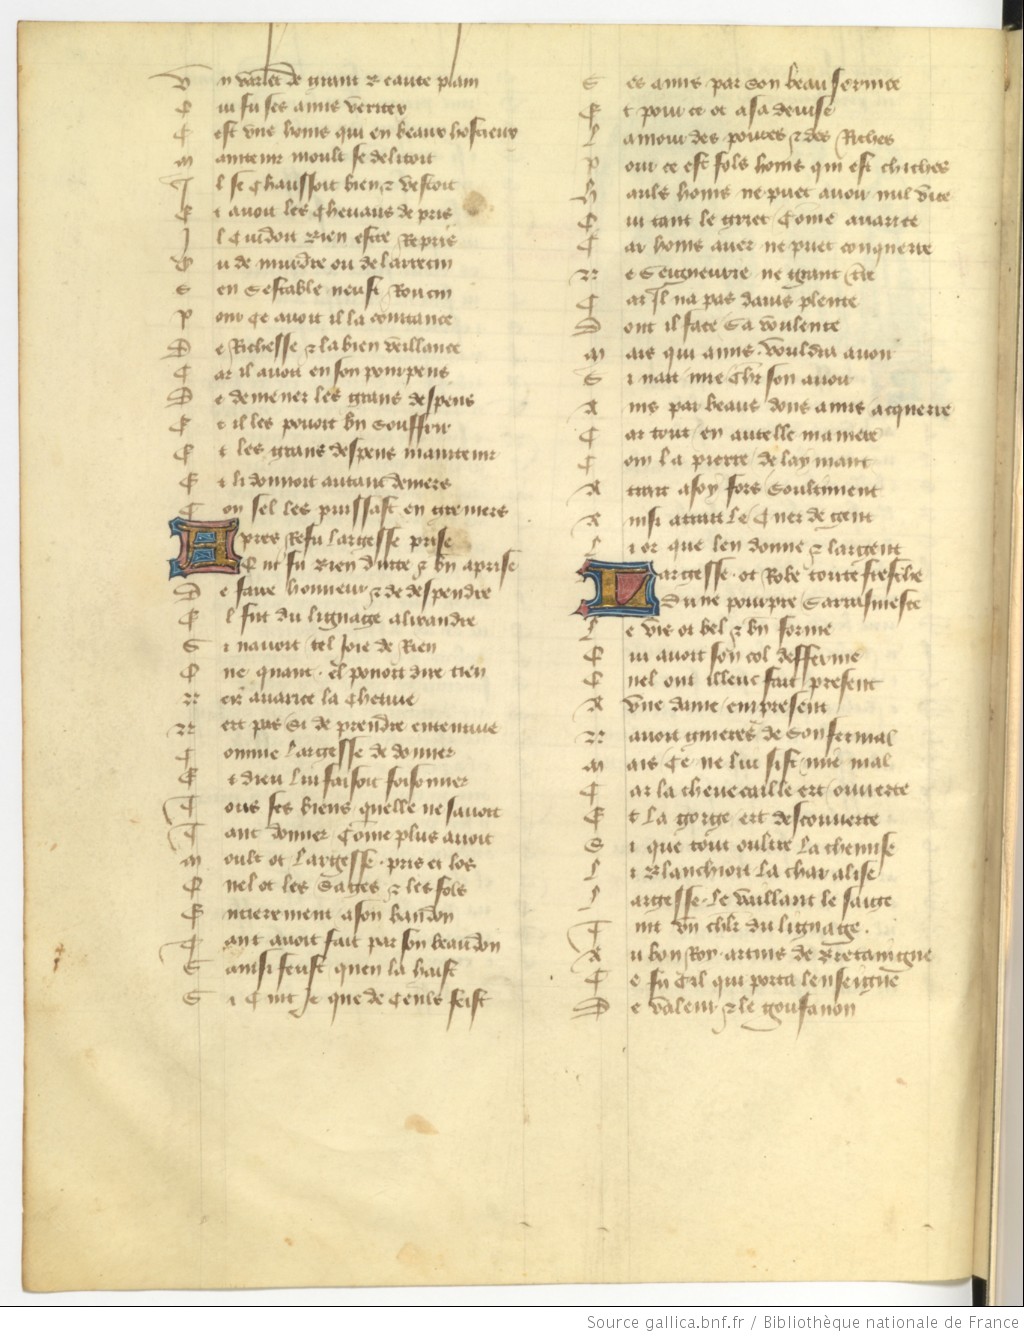 Un varlet de grant beaute plain
Qui fu ses amis veritez
Cest une homs qui en beaux hosteux
Maintenir moult se delitoit
Il se chaussoit bien & vestoit
Si avoit les chevaus de pris
Il cuidoit bien estre repris
Ou de murdre ou de larrecin
Sen sestable neust roucin
Pour ce avoit il la cointance
De richesse & la bien veillance
Car il avoit en son pourpens
De demener les grans despens
Et il les povoit bn souffrir
Et les grans despens maintenir
El li donnoit autant deniers
Con sel les puissast en greniers
Apres refu largesse prise
Qui fu bien duitte & bn aprise
De faire honneur & de despendre
El fut du lignage alixandre
Si navoit tel joie de rien
Come quant el povoit dire tien
Neis avarice la chetive
Nert pas si de prendre ententive
Comme largesse de donner
Et dieu lui faisoit foisonner
Tous ses biens quelle ne savoit
Tant donner come plus avoit
Moult ot largesse pris et los
Quel ot les sages & les fols
Entierement a son bandon
Tant avoit fait par son beau don
Sainsi feust quen la haist
Si cuit je que de ceuls feist
Ses amis par son beau service
Et pour ce ot a sa devise
Lamour des povres & des riches
Pour ce est fols homs qui est chiches
Hauls homs ne puet avoir nul vice
Qui tant le griet come avarice
Car homs aver ne puet conquerre
Ne seigneurie ne grant tre
Car il na pas damis plente
Dont il face sa voulente
Mais qui amis vouldra avoir
Si nait mie chir son avoir
Ains par beaus dons amis acquerre
Car tout en autelle maniere
Com la pierre de laymant
Trait a soy fers soultiment
Ainsi attrait le cuer de gent
Li or que len donne & largent
Largesse ot robe toute fresche
Dune pourpre sarrasinesce
Le vis ot bel & bn forme
Qui avoit son col desferme
Quel ont illeuc fait present
A une dame em present
Navoit guieres de son fermal
Mais ce ne lui sist mie mal
Car la chevecaille ert ouverte
Et la gorge ert descouverte
Si que tout oultre la chemise
Li blanchiort la char alise
Largesse le vaillant le saige
Tint un chlr du lignage.
Au bon roy artus de bretaingne
Ce fu cil qui porta lenseigne
De valeur & le goufanon
Source gallica.bnf.fr / Bibliothèque nationale de France